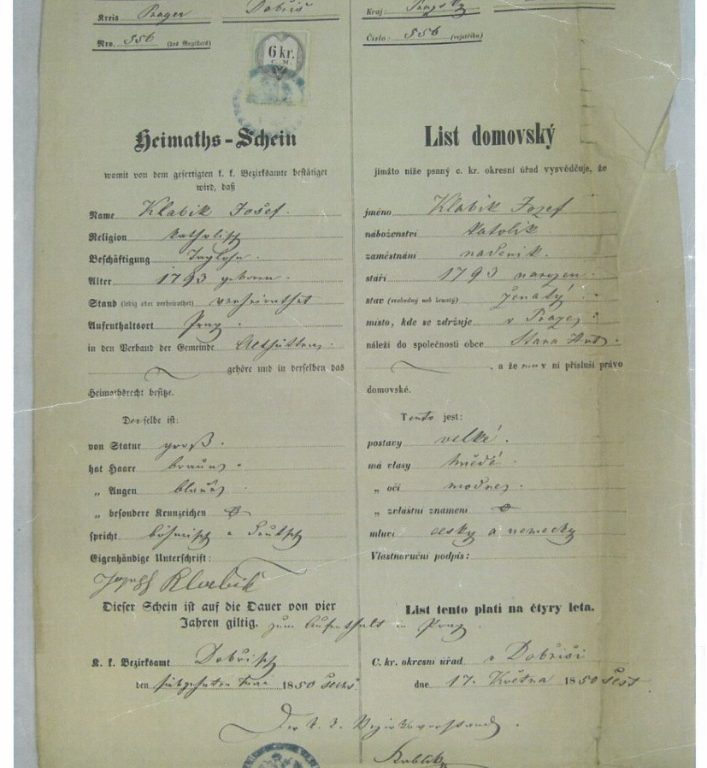 Kreis Prager Dobřiš
Nro. 556 (des Registers)
6 kr.
C. M.
Heimaths-Schein
womit von dem gefertigten k. k. Bezirksamte bestätiget
wird, daß
Name Klabik Josef.
Religion katholisch
Beschäftigung Taglohn.
Alter 1793 geboren.
Stand (ledig oder verheirathet) verheirathet
Aufenthaltsort Prag.
in den Verband der Gemeinde Althütten
gehöre und in derselben das
Heimathsrecht besitze.
Derselbe ist:
von Statur groß.
hat Haare braune
„ Augen blaue
„ besondere Kennzeichen
spricht böhmisch u deutsch
Eigenhändige Unterschrift:
Joseph Klabik
Dieser Schein ist auf die Dauer von vier
Jahren giltig. zum Aufenthalt in Prag.
K. k. Bezirksamt Dobřisch
den siebzehnten Mai 1850 sechs
Kraj: Pražský
Číslo: 556 (rejstříku)
List domovský
jímžto níže psaný c. kr. okresní úřad vysvědčuje, že
jméno Klabík Jozef
náboženství katolík
zaměstnání nadeník.
stáří 1793 narozen
stav (svobodný neb ženatý) ženatý
místo, kde se zdržuje v Praze
náleží do společnosti obce Stara Huť
, a že mu v ní přísluší právo
domovské.
Tento jest:
postavy velké.
má vlasy hnědé
„ oči modré
„ zvláštní znamení
mluví česky a německy
Vlastnoruční podpis:
List tento platí na čtyry leta.
C. kr. okresní úřad v Dobříši
dne 17. Května 1850 šest
Der k. k. Bezirksvorstand.